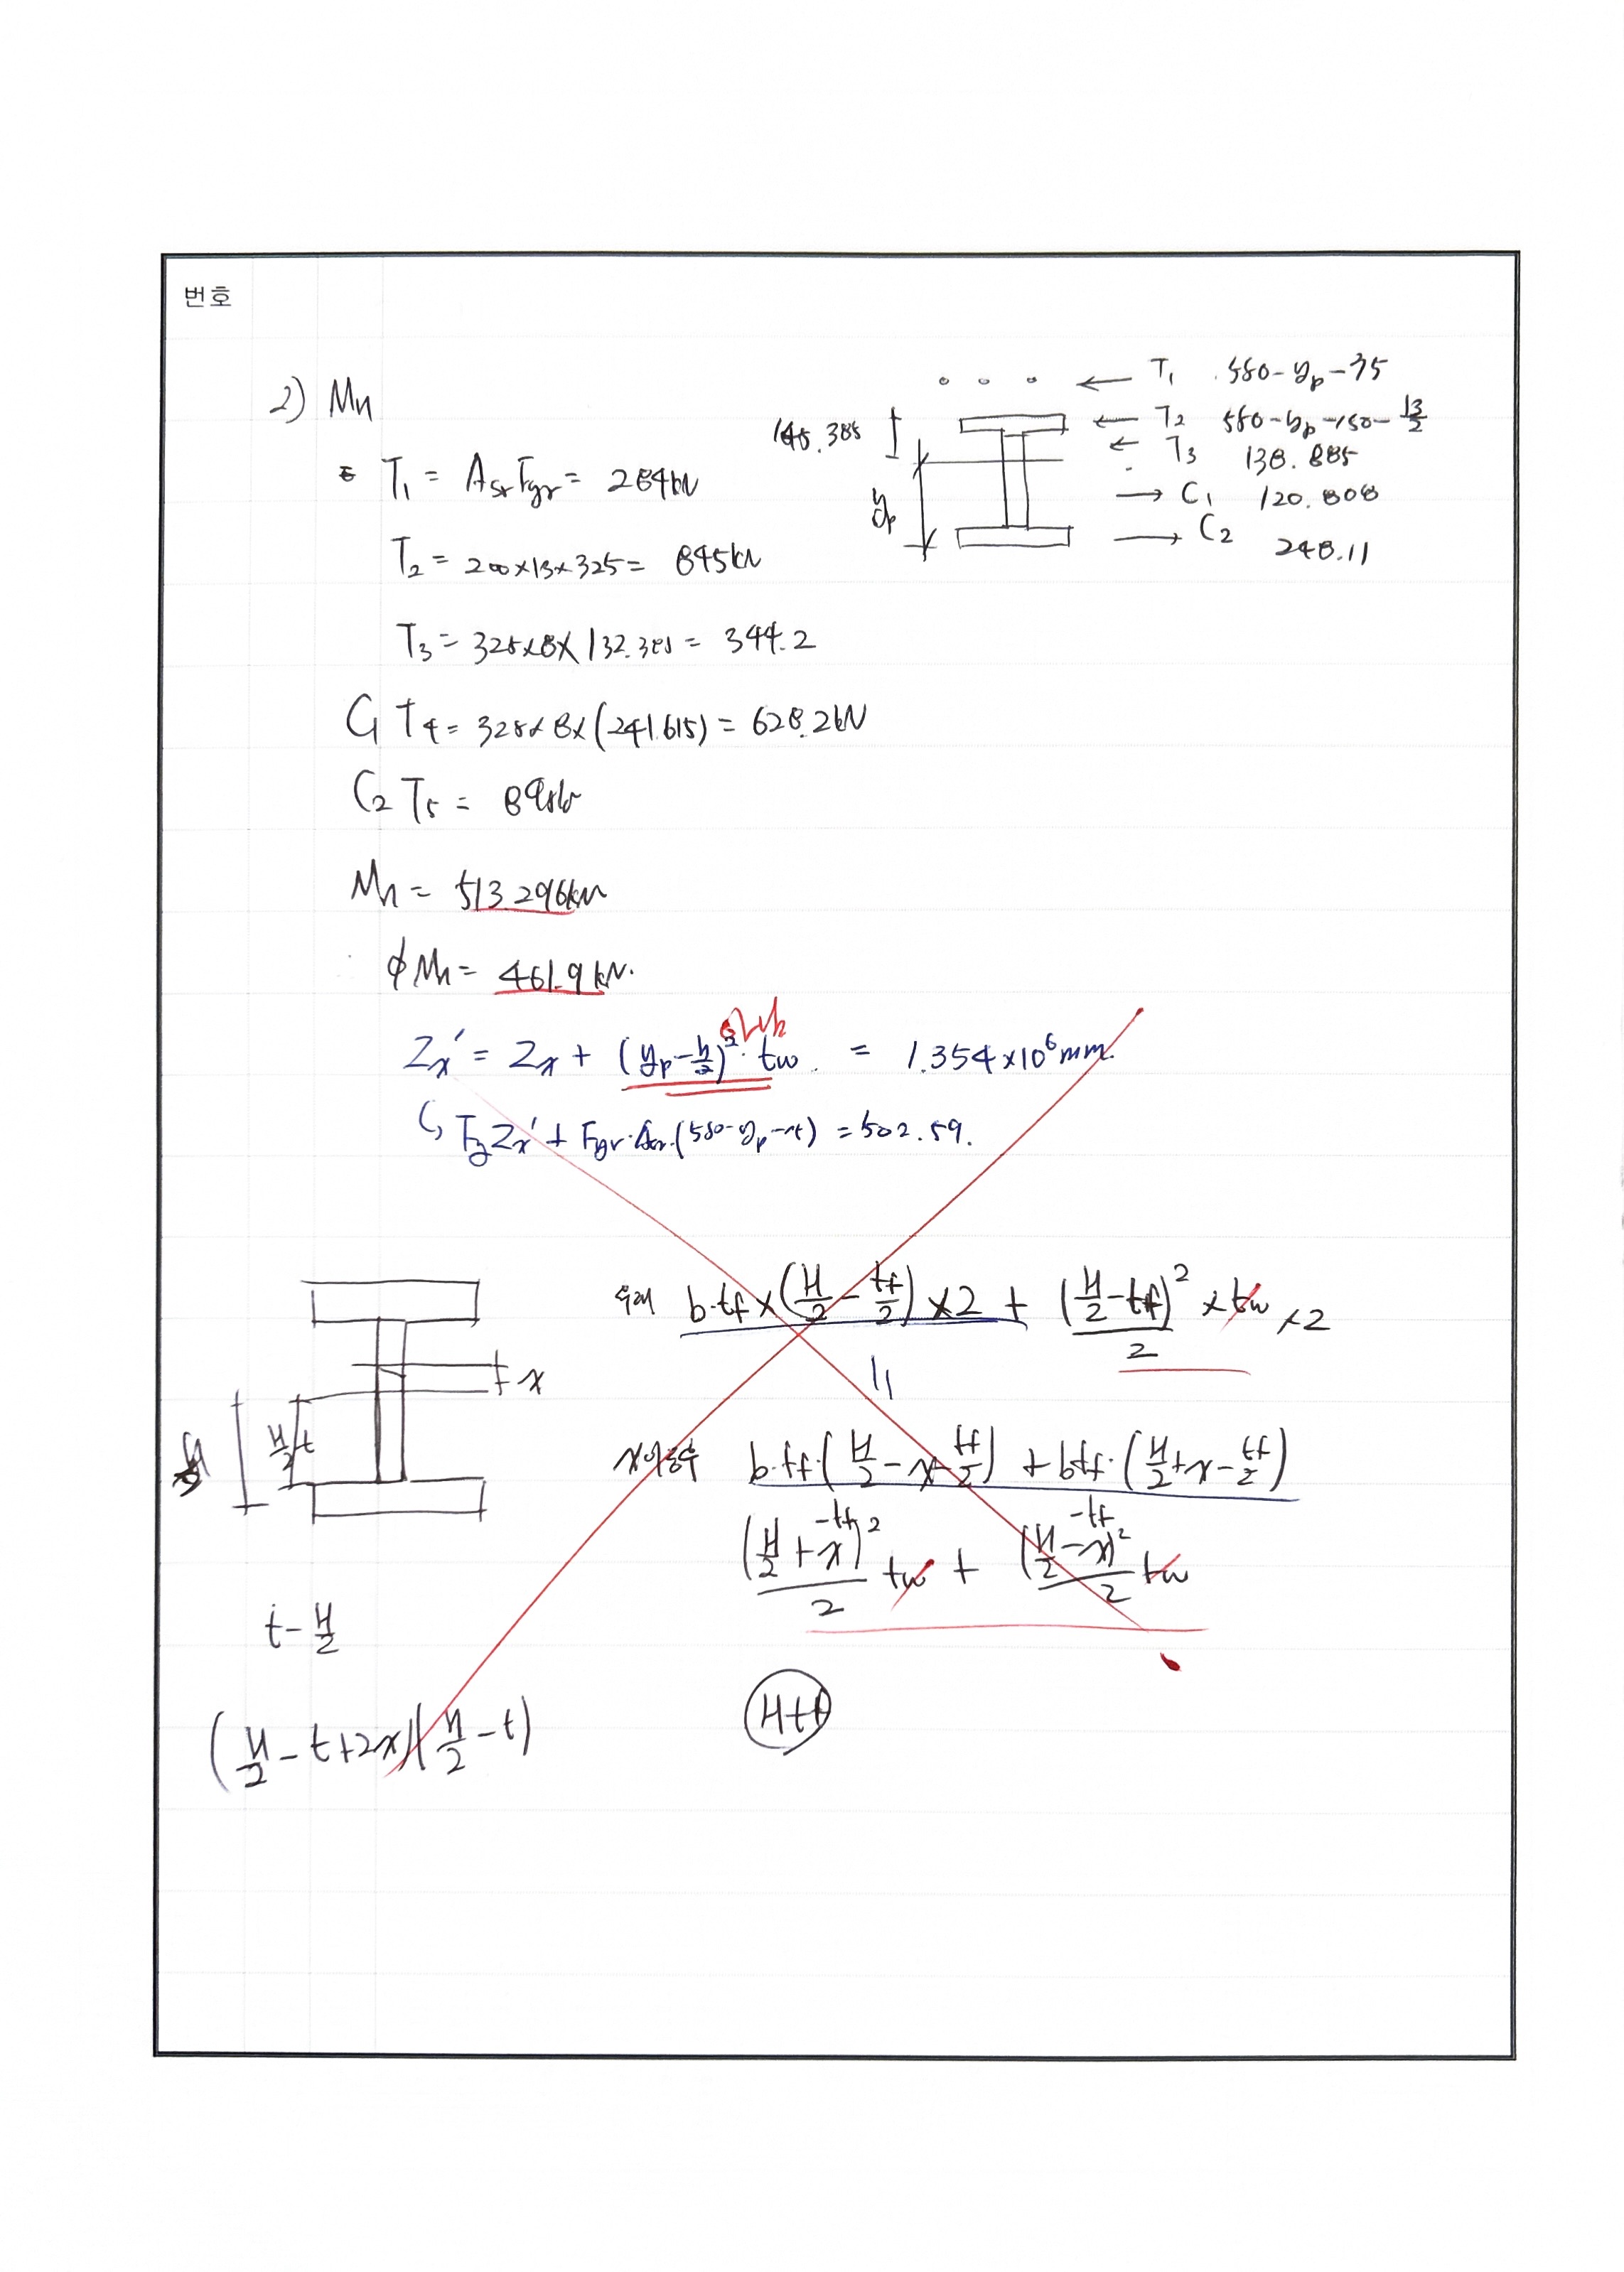 번호
2) Mn
T1 = Asr Fyr = 284kN
T2 = 200×13×325 = 845kN
T3 = 325×8×132.385 = 344.2
C1 T4 = 325×8×(241.615) = 628.2kN
C2 T5 = 845kN
Mn = 513.296kN
φMn = 461.9kN.
T1 580-yp-75
T2 580-yp-150-13/2
T3 138.885
C1 120.808
C2 248.11
145.385
yp
Zx' = Zx + (yp-h/2)²·tw = 1.354×10⁶mm.
Fy Zx' + Fyr·Asr·(580-yp-75) = 502.59.
b·tf×(H/2-tf/2)×2 + (H/2-tf)²/2 ×tw ×2
x
H/2-t
x이동 b·tf·(H/2-x-tf/2) + btf·(H/2+x-tf/2)
(H/2+x-tf)²/2 tw + (H/2-x-tf)²/2 tw
t-H/2
Htf
(H/2-t+2x)(H/2-t)